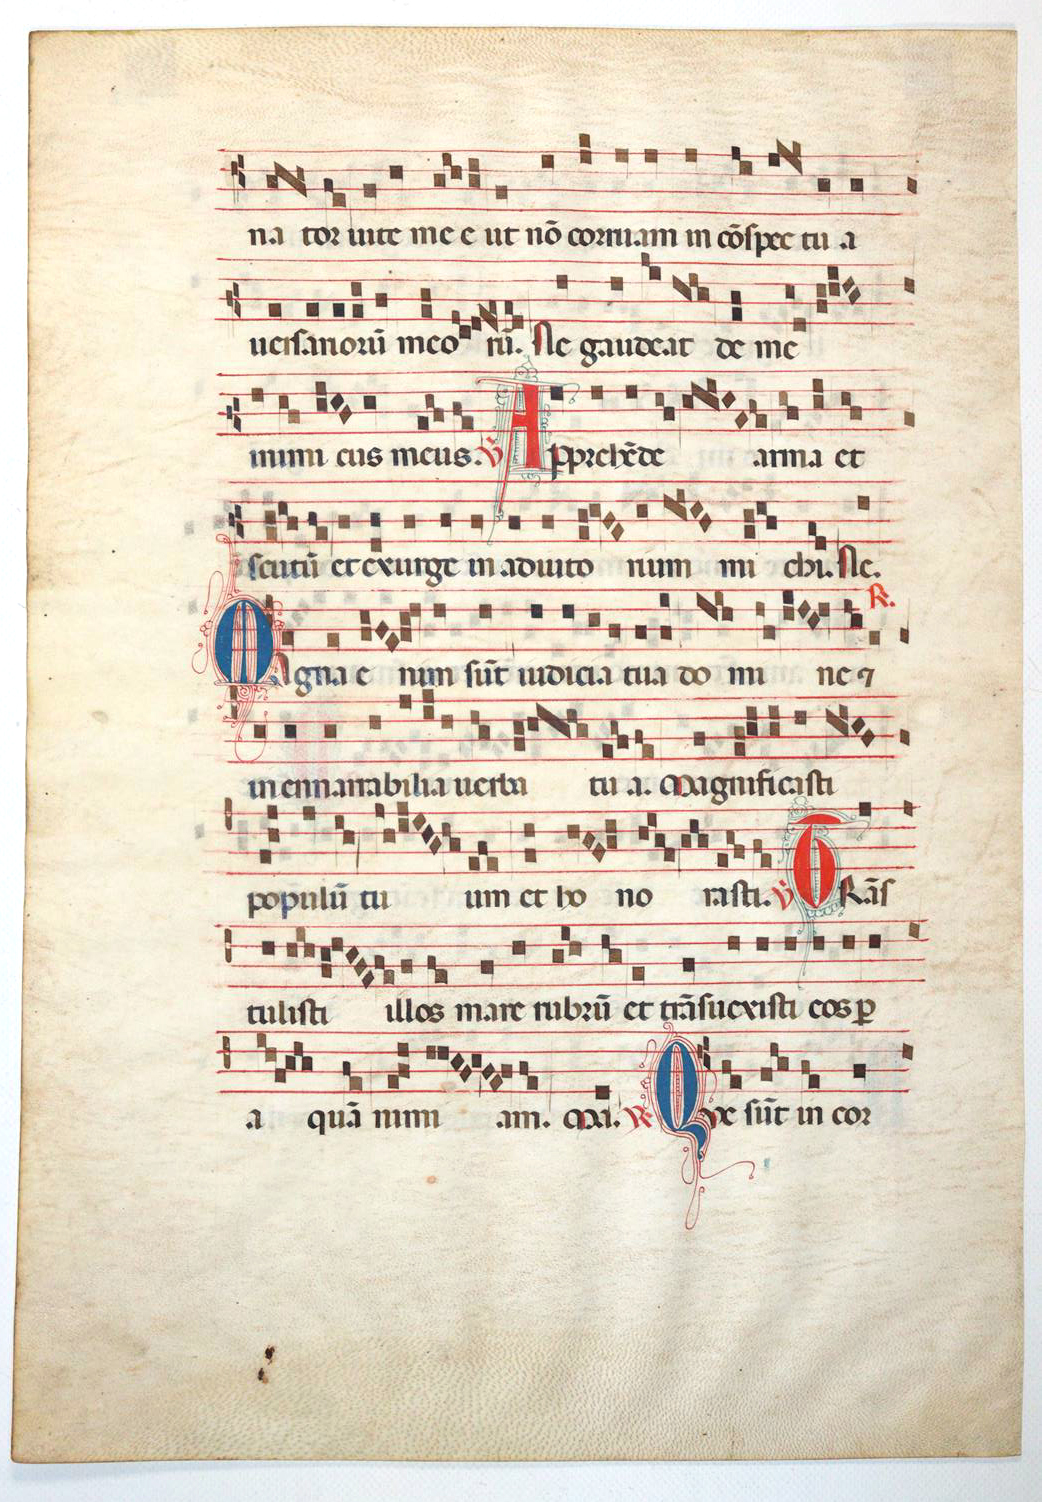 na tor uite mee ut nō corruam in cōspec tu a
uersariorū meo rū. Ne gaudeat de me
inimi cus meus. ℣ Apprehēde arma et
scutū et exurge in adiuto rium mi chi. Ne.
℟.
Magna e nim sūt iudicia tua do mi ne ⁊
inennarrabilia uerba tu a. Magnificasti
populū tu um et ho no rasti. ℣ TRās
tulisti illos mare rubrū et trāsuexisti eos p
a quā nimi am. Ma. ℟. Que sūt in cor